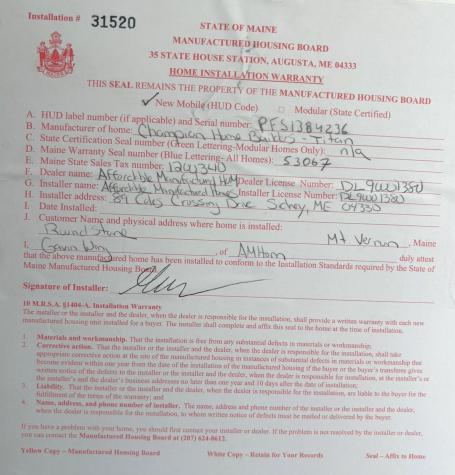 Installation # 31520
STATE OF MAINE
MANUFACTURED HOUSING BOARD
35 STATE HOUSE STATION, AUGUSTA, ME 04333
HOME INSTALLATION WARRANTY
THIS SEAL REMAINS THE PROPERTY OF THE MANUFACTURED HOUSING BOARD
✓ New Mobile (HUD Code) □ Modular (State Certified)
A. HUD label number (if applicable) and Serial number: PFS1384236
B. Manufacturer of home: Champion Home Builders - Titan
C. State Certification Seal number (Green Lettering-Modular Homes Only): n/a
D. Maine Warranty Seal number (Blue Lettering- All Homes): 53067
E. Maine State Sales Tax number:
F. Dealer name: Affordable Manufactured Dealer License Number: DL9WW1380
G. Installer name: Affordable Manufactured Homes Installer License Number: DL9WW1380
H. Installer address: 89 Cales Crossing Drive Sidney, ME 04330
I. Date Installed:
J. Customer Name and physical address where home is installed:
Stone Mt Vernon, Maine
I, Gavin, of AMHom duly attest
that the above manufactured home has been installed to conform to the Installation Standards required by the State of
Maine Manufactured Housing Board.
Signature of Installer:
10 M.R.S.A. §1404-A. Installation Warranty
The installer or the installer and the dealer, when the dealer is responsible for the installation, shall provide a written warranty with each new
manufactured housing unit installed for a buyer. The installer shall complete and affix this seal to the home at the time of installation.
1. Materials and workmanship. That the installation is free from any substantial defects in materials or workmanship;
2. Corrective action. That the installer or the installer and the dealer, when the dealer is responsible for the installation, shall take
appropriate corrective action at the site of the manufactured housing in instances of substantial defects in materials or workmanship that
become evident within one year from the date of the installation of the manufactured housing if the buyer or the buyer's transferee gives
written notice of the defects to the installer or the installer and the dealer, when the dealer is responsible for installation, at the installer's or
the installer's and the dealer's business addresses no later than one year and 10 days after the date of installation;
3. Liability. That the installer or the installer and the dealer, when the dealer is responsible for the installation, are liable to the buyer for the
fulfillment of the terms of the warranty; and
4. Name, address, and phone number of installer. The name, address and phone number of the installer or the installer and the dealer,
when the dealer is responsible for the installation, to whom written notice of defects must be mailed or delivered by the buyer.
If you have a problem with your home, you should first contact your installer or dealer. If the problem is not resolved by the installer or dealer,
you can contact the Manufactured Housing Board at (207) 624-8612.
Yellow Copy – Manufactured Housing Board White Copy – Retain for Your Records Seal – Affix to Home